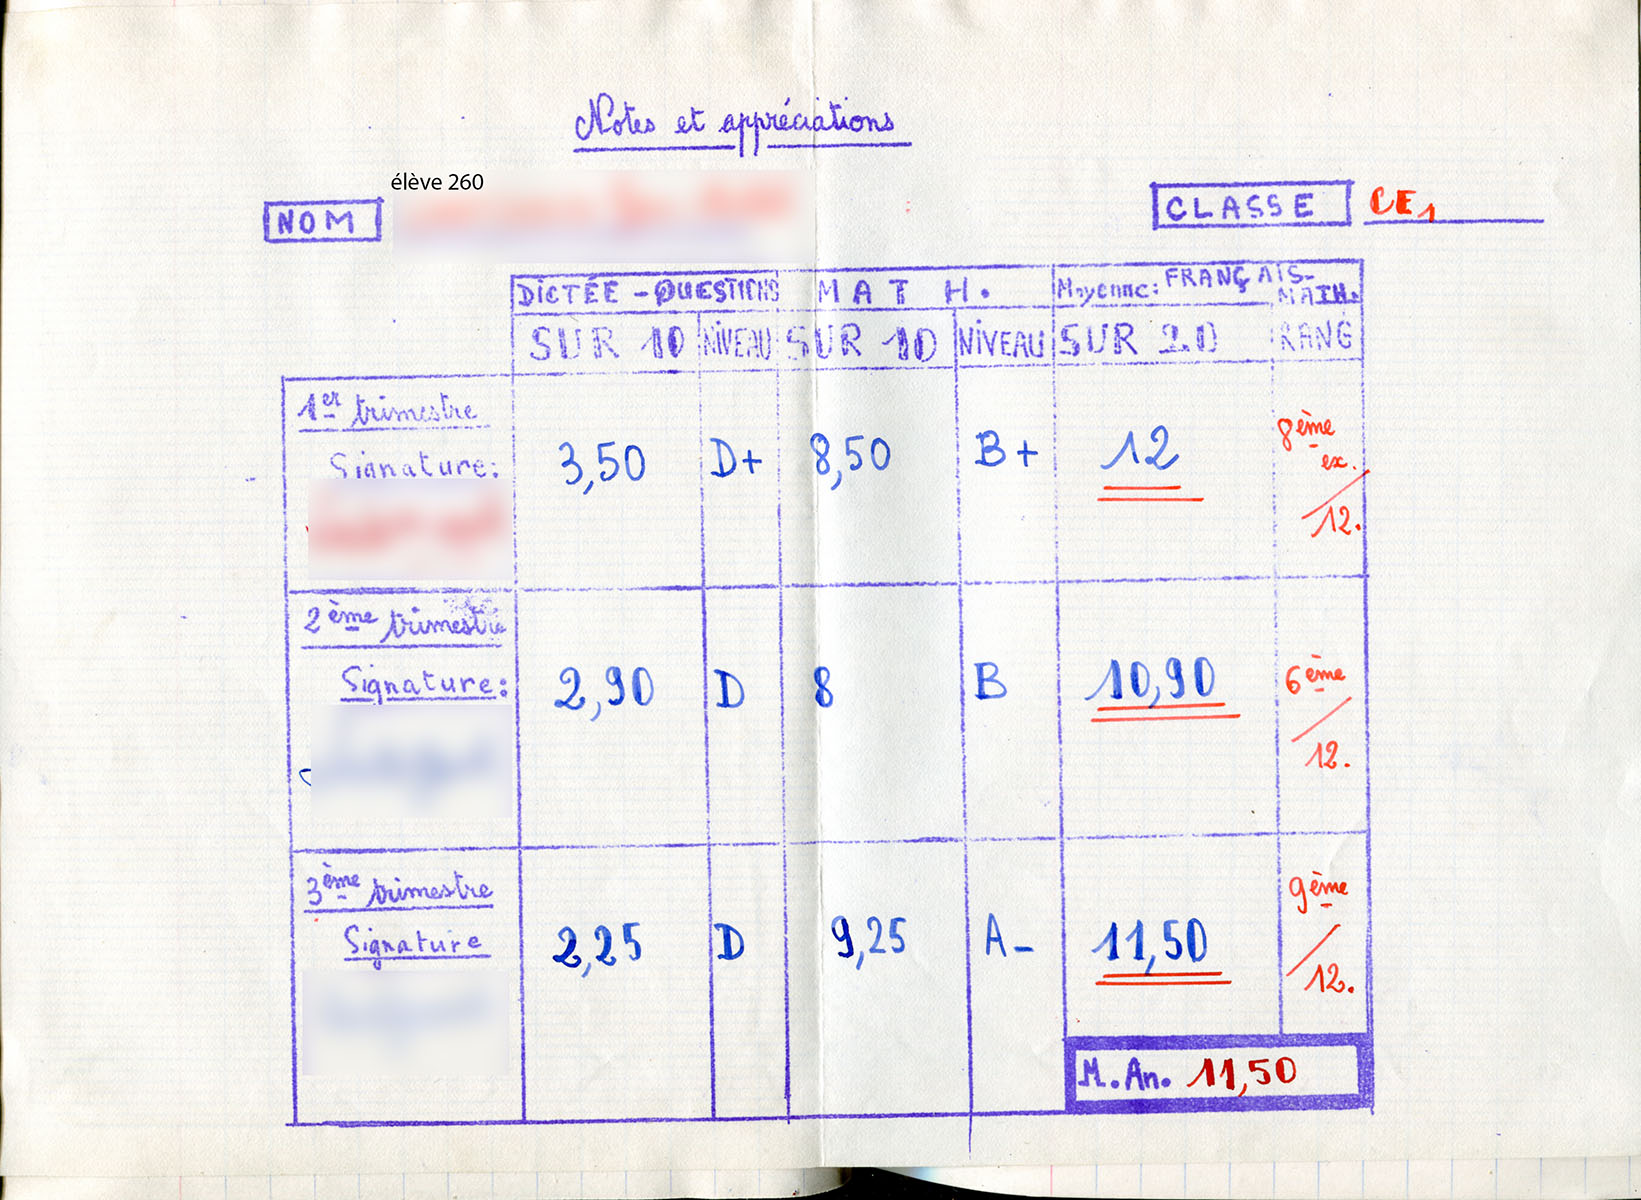 Notes et appréciations
élève 260
NOM
CLASSE CE1
DICTÉE - QUESTIONS MATH. Moyenne: FRANÇAIS-MATH.
SUR 10 NIVEAU SUR 10 NIVEAU SUR 20 RANG
1er trimestre
Signature:
3,50 D+ 8,50 B+ 12 8ème ex. / 12.
2ème trimestre
Signature:
2,90 D 8 B 10,90 6ème / 12.
3ème trimestre
Signature
2,25 D 9,25 A- 11,50 9ème / 12.
M. An. 11,50